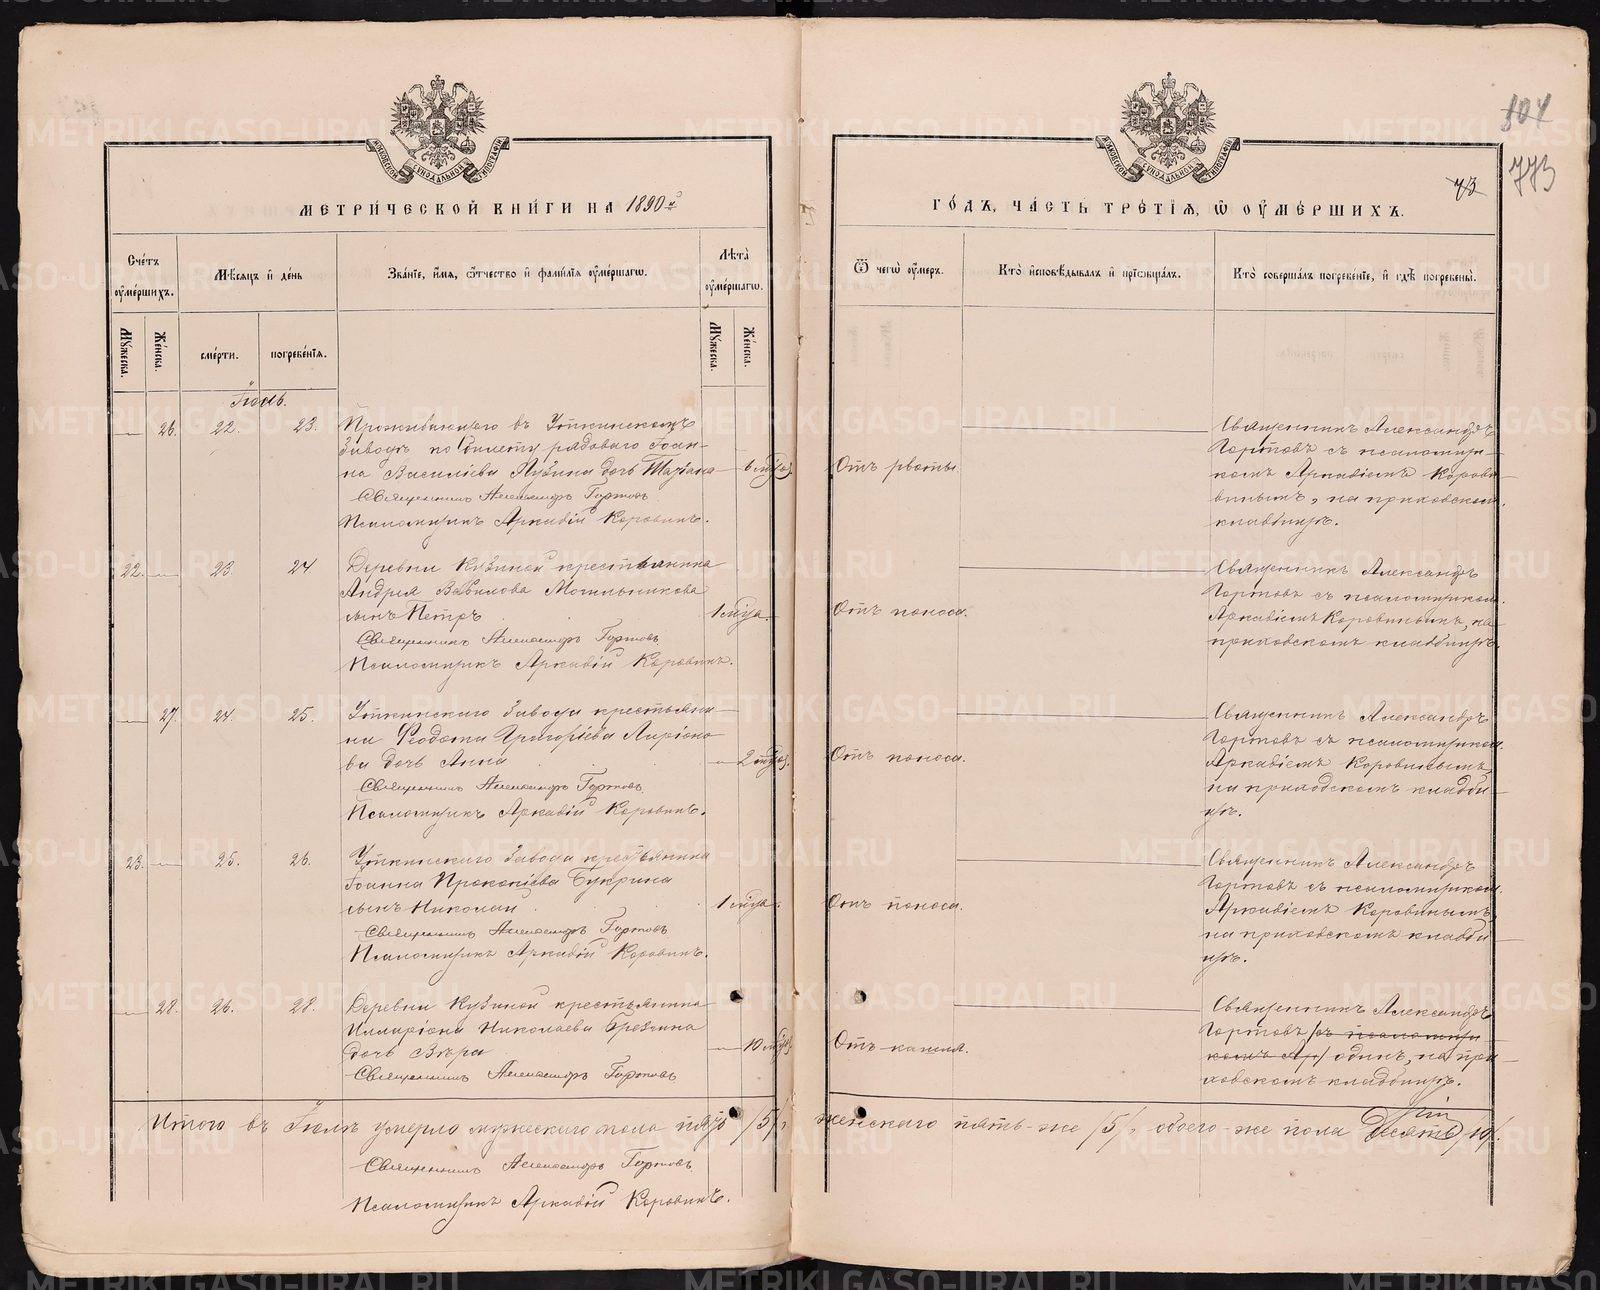 МЕТРИ́ЧЕСКОЙ КНИ́ГИ НА 1890 й
Сче́тъ оу҆ме́ршихъ.
Мѣ́сяцъ и҆ де́нь
Зва́нїе, и҆́мя, ѻ҆́тчество и҆ фами́лїя оу҆ме́ршагѡ.
Лѣ́та оу҆ме́ршагѡ.
Мꙋ́жеска.
Же́нска.
сме́рти.
погребе́нїя.
Мꙋ́жеска.
Же́нска.
Іюль.
26. 22. 23. Проживающаго въ Уткинскомъ
Заводѣ по билету рядоваго Іоан-
на Васильева Лузина дочь Татіана 6 мѣс.
Священникъ Александръ Гортовъ
Псаломщикъ Аркадій Коровинъ.
22. 23. 24. Деревни Кузиной крестьянина
Андрея Вавилова Мотыльникова
сынъ Петръ 1 мѣсц.
Священникъ Александръ Гортовъ
Псаломщикъ Аркадій Коровинъ.
27. 24. 25. Уткинскаго Завода крестьяни-
на Ѳеодота Григорьева Ларіоно-
ва дочь Анна 2 мѣс.
Священникъ Александръ Гортовъ
Псаломщикъ Аркадій Коровинъ.
23. 25. 26. Уткинскаго Завода крестьянина
Іоанна Прокопіева Букрина
сынъ Николай 1 мѣсц.
Священникъ Александръ Гортовъ
Псаломщикъ Аркадій Коровинъ.
28. 26. 28. Деревни Кузиной крестьянина
Илларіона Николаева
дочь Вѣра 10 мѣс.
Священникъ Александръ Гортовъ
Итого въ Іюлѣ умерло мужескаго пола пять /5/,
Священникъ Александръ Гортовъ
Псаломщикъ Аркадій Коровинъ.
773
73
ГО́ДЪ, ЧА́СТЬ ТРЕ́ТЇЯ, Ѽ ОУ҆МЕ́РШИХЪ.
Ѿ чегѡ̀ оу҆́меръ.
Кто̀ и҆сповѣ́дывалъ и҆ прїѡбща́лъ.
Кто̀ соверша́лъ погребе́нїе, и҆ гдѣ̀ погребены̀.
Отъ рвоты
Священникъ Александръ
Гортовъ съ псаломщи-
комъ Аркадіемъ Коро-
винымъ, на приходскомъ
кладбищѣ.
Отъ поноса.
Священникъ Александръ
Гортовъ съ псаломщикомъ
Аркадіемъ Коровинымъ, на
приходскомъ кладбищѣ.
Отъ поноса.
Священникъ Александръ
Гортовъ съ псаломщикомъ
Аркадіемъ Коровинымъ,
на приходскомъ кладби-
щѣ.
Отъ поноса.
Священникъ Александръ
Гортовъ съ псаломщикомъ
Аркадіемъ Коровинымъ,
на приходскомъ кладби-
щѣ.
Отъ кашля.
Священникъ Александръ
Гортовъ /съ псаломщи-
комъ Ар/ одинъ, на при-
ходскомъ кладбищѣ.
женскаго пять-же /5/, обоего-же пола десять /10/.
METRIKI.GASO-URAL.RU